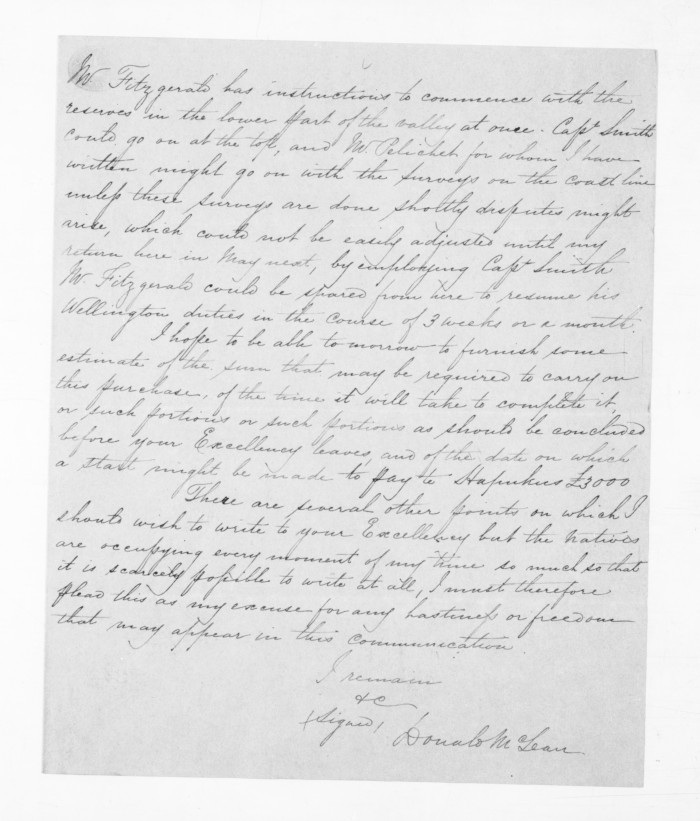 Mr. Fitzgerald has instructions to commence with the
reserves in the lower part of the valley at once. Capt. Smith
could go on at the top, and Mr. Pelichet for whom I have
written might go on with the surveys on the coast line
unless these surveys are done shortly disputes might
arise, which could not be easily adjusted until my
return here in May next, by employing Capt. Smith
Mr. Fitzgerald could be spared from here to resume his
Wellington duties in the course of 3 weeks or a month.
I hope to be able to morrow to furnish some
estimate of the sum that may be required to carry on
this purchase, of the time it will take to complete it,
or such portions or such portions as should be concluded
before your Excellency leaves, and of the date on which
a start might be made to pay Te Hapukus £3000
There are several other points on which I
should wish to write to your Excellency but the Natives
are occupying every moment of my time so much so that
it is scarcely possible to write at all, I must therefore
plead this as my excuse for any hastiness or freedom
that may appear in this communication.
I remain
&c
(Signed)
Donald McLean